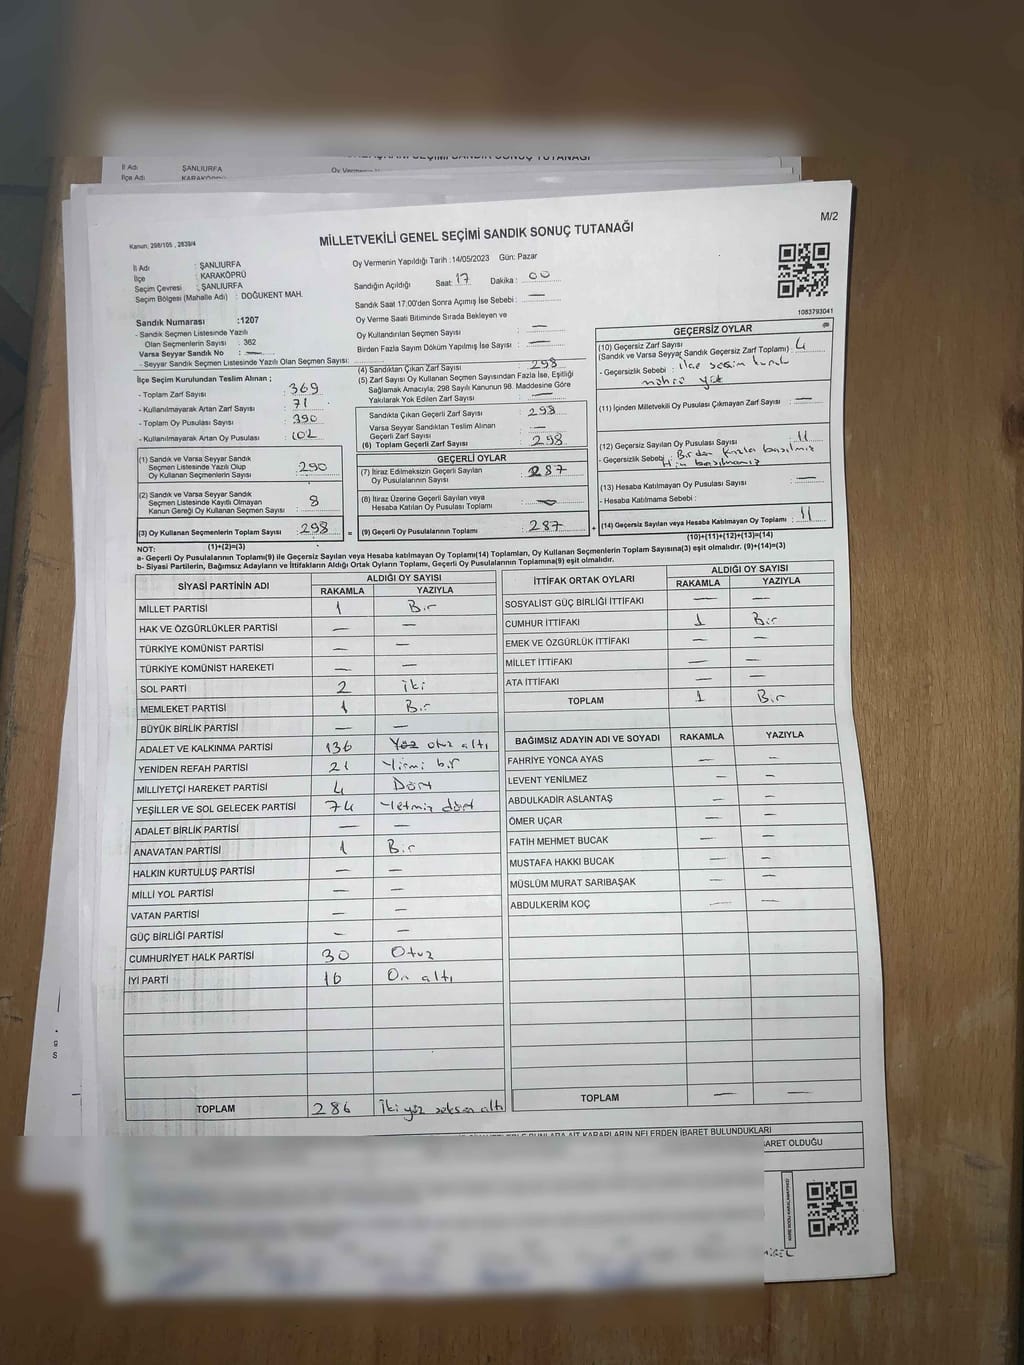 İl Adı ŞANLIURFA
İlçe Adı
M/2
Kanun, 298/105 , 2839/4
MİLLETVEKİLİ GENEL SEÇİMİ SANDIK SONUÇ TUTANAĞI
İl Adı : ŞANLIURFA
İlçe : KARAKÖPRÜ
Seçim Çevresi : ŞANLIURFA
Seçim Bölgesi (Mahalle Adı) : DOĞUKENT MAH.
Sandık Numarası :1207
- Sandık Seçmen Listesinde Yazılı
Olan Seçmenlerin Sayısı : 362
Varsa Seyyar Sandık No : —
- Seyyar Sandık Seçmen Listesinde Yazılı Olan Seçmen Sayısı:
Oy Vermenin Yapıldığı Tarih :14/05/2023 Gün: Pazar
Sandığın Açıldığı Saat: 17 Dakika : 00
Sandık Saat 17:00'den Sonra Açımış İse Sebebi : —
Oy Verme Saati Bitiminde Sırada Bekleyen ve
Oy Kullandırılan Seçmen Sayısı : —
Birden Fazla Sayım Döküm Yapılmış İse Sayısı : —
1083793041
İlçe Seçim Kurulundan Teslim Alınan ;
- Toplam Zarf Sayısı : 369
- Kullanılmayarak Artan Zarf Sayısı : 71
- Toplam Oy Pusulası Sayısı : 390
- Kullanılmayarak Artan Oy Pusulası : 102
(1) Sandık ve Varsa Seyyar Sandık
Seçmen Listesinde Yazılı Olup
Oy Kullanan Seçmenlerin Sayısı : 290
(2) Sandık ve Varsa Seyyar Sandık
Seçmen Listesinde Kayıtlı Olmayan
Kanun Gereği Oy Kullanan Seçmen Sayısı : 8
(3) Oy Kullanan Seçmenlerin Toplam Sayısı : 298
(1)+(2)=(3)
(4) Sandıktan Çıkan Zarf Sayısı : 298
(5) Zarf Sayısı Oy Kullanan Seçmen Sayısından Fazla İse, Eşitliği
Sağlamak Amacıyla; 298 Sayılı Kanunun 98. Maddesine Göre
Yakılarak Yok Edilen Zarf Sayısı : —
Sandıkta Çıkan Geçerli Zarf Sayısı : 298
Varsa Seyyar Sandıktan Teslim Alınan
Geçerli Zarf Sayısı : —
(6) Toplam Geçerli Zarf Sayısı : 298
GEÇERLİ OYLAR
(7) İtiraz Edilmeksizin Geçerli Sayılan
Oy Pusulasının Sayısı : 287
(8) İtiraz Üzerine Geçerli Sayılan veya
Hesaba Katılan Oy Pusulası Toplamı : —
= (9) Geçerli Oy Pusulalarının Toplamı : 287
GEÇERSİZ OYLAR
(10) Geçersiz Zarf Sayısı
(Sandık ve Varsa Seyyar Sandık Geçersiz Zarf Toplamı) : 4
- Geçersizlik Sebebi : İlçe seçim kurulu
mührü yok
(11) İçinden Milletvekili Oy Pusulası Çıkmayan Zarf Sayısı : —
(12) Geçersiz Sayılan Oy Pusulası Sayısı : 11
- Geçersizlik Sebebi : Birden fazla basılmış
Hiç basılmamış
(13) Hesaba Katılmayan Oy Pusulası Sayısı : —
- Hesaba Katılmama Sebebi :
+ (14) Geçersiz Sayılan veya Hesaba Katılmayan Oy Toplamı : 11
(10)+(11)+(12)+(13)=(14)
NOT:
a- Geçerli Oy Pusulalarının Toplamı(9) ile Geçersiz Sayılan veya Hesaba katılmayan Oy Toplamı(14) Toplamları, Oy Kullanan Seçmenlerin Toplam Sayısına(3) eşit olmalıdır. (9)+(14)=(3)
b- Siyasi Partilerin, Bağımsız Adayların ve İttifakların Aldığı Ortak Oyların Toplamı, Geçerli Oy Pusulalarının Toplamına(9) eşit olmalıdır.
SİYASİ PARTİNİN ADI ALDIĞI OY SAYISI
RAKAMLA YAZIYLA
MİLLET PARTİSİ 1 Bir
HAK VE ÖZGÜRLÜKLER PARTİSİ — —
TÜRKİYE KOMÜNİST PARTİSİ — —
TÜRKİYE KOMÜNİST HAREKETİ — —
SOL PARTİ 2 iki
MEMLEKET PARTİSİ 1 Bir
BÜYÜK BİRLİK PARTİSİ — —
ADALET VE KALKINMA PARTİSİ 136 Yüz otuz altı
YENİDEN REFAH PARTİSİ 21 Yirmi bir
MİLLİYETÇİ HAREKET PARTİSİ 4 Dört
YEŞİLLER VE SOL GELECEK PARTİSİ 74 Yetmiş dört
ADALET BİRLİK PARTİSİ — —
ANAVATAN PARTİSİ 1 Bir
HALKIN KURTULUŞ PARTİSİ — —
MİLLİ YOL PARTİSİ — —
VATAN PARTİSİ — —
GÜÇ BİRLİĞİ PARTİSİ — —
CUMHURİYET HALK PARTİSİ 30 Otuz
İYİ PARTİ 16 On altı
TOPLAM 286 İki yüz seksen altı
İTTİFAK ORTAK OYLARI ALDIĞI OY SAYISI
RAKAMLA YAZIYLA
SOSYALİST GÜÇ BİRLİĞİ İTTİFAKI — —
CUMHUR İTTİFAKI 1 Bir
EMEK VE ÖZGÜRLÜK İTTİFAKI — —
MİLLET İTTİFAKI — —
ATA İTTİFAKI — —
TOPLAM 1 Bir
BAĞIMSIZ ADAYIN ADI VE SOYADI RAKAMLA YAZIYLA
FAHRİYE YONCA AYAS — —
LEVENT YENİLMEZ — —
ABDULKADİR ASLANTAŞ — —
ÖMER UÇAR — —
FATİH MEHMET BUCAK — —
MUSTAFA HAKKI BUCAK — —
MÜSLÜM MURAT SARIBAŞAK — —
ABDULKERİM KOÇ — —
TOPLAM — —
KARARLARIN NELERDEN İBARET BULUNDUKLARI
OLDUĞU